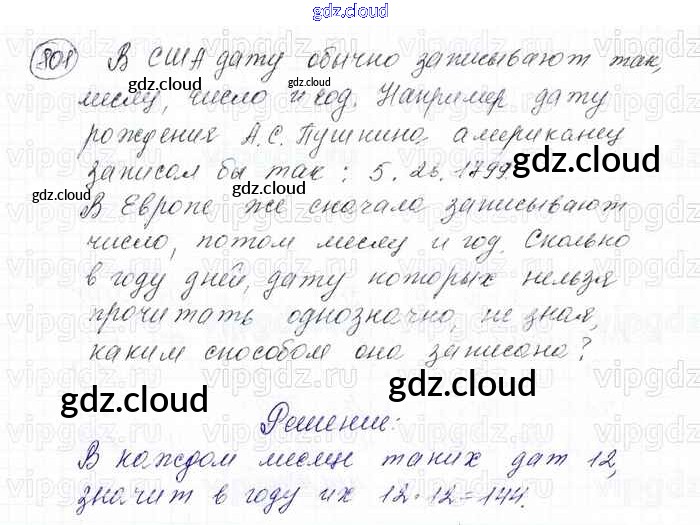 gdz.cloud
801 В США дату обычно записывают так,
месяц, число и год. Например дату
рождения А.С. Пушкина американец
записал бы так: 5.26.1799.
В Европе же сначала записывают
число, потом месяц и год. Сколько
в году дней, дату которых нельзя
прочитать однозначно, не зная,
каким способом она записана?
Решение:
В каждом месяце таких дат 12,
значит в году их 12·12=144.
gdz.cloud
gdz.cloud
gdz.cloud
gdz.cloud
gdz.cloud
gdz.cloud
gdz.cloud